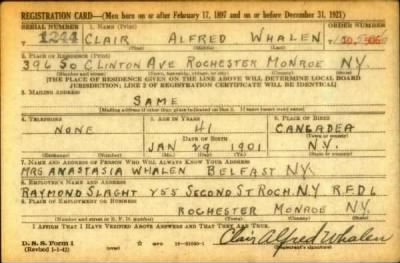 REGISTRATION CARD—(Men born on or after February 17, 1897 and on or before December 31, 1921)
SERIAL NUMBER 1. NAME (Print) ORDER NUMBER
T 1244 CLAIR ALFRED WHALEN T
(First) (Middle) (Last)
2. PLACE OF RESIDENCE (Print)
396 SO CLINTON AVE ROCHESTER MONROE N.Y.
(Number and street) (Town, township, village, or city) (County) (State)
[THE PLACE OF RESIDENCE GIVEN ON THE LINE ABOVE WILL DETERMINE LOCAL BOARD
JURISDICTION; LINE 2 OF REGISTRATION CERTIFICATE WILL BE IDENTICAL]
3. MAILING ADDRESS
SAME
[Mailing address if other than place indicated on line 2. If same insert word same]
4. TELEPHONE 5. AGE IN YEARS 6. PLACE OF BIRTH
NONE 41 CANEADEA
DATE OF BIRTH (Town or county)
JAN 29 1901 N.Y.
(Exchange) (Number) (Mo.) (Day) (Yr.) (State or country)
7. NAME AND ADDRESS OF PERSON WHO WILL ALWAYS KNOW YOUR ADDRESS
MRS ANASTASIA WHALEN BELFAST N.Y.
8. EMPLOYER'S NAME AND ADDRESS
RAYMOND SLAGHT 455 SECOND ST ROCH. N.Y. R.F.D.1
9. PLACE OF EMPLOYMENT OR BUSINESS
ROCHESTER MONROE N.Y.
(Number and street or R. F. D. number) (Town) (County) (State)
I AFFIRM THAT I HAVE VERIFIED ABOVE ANSWERS AND THAT THEY ARE TRUE.
D. S. S. Form 1
(Revised 1-1-42) (over) GPO Clair Alfred Whalen
(Registrant's signature)